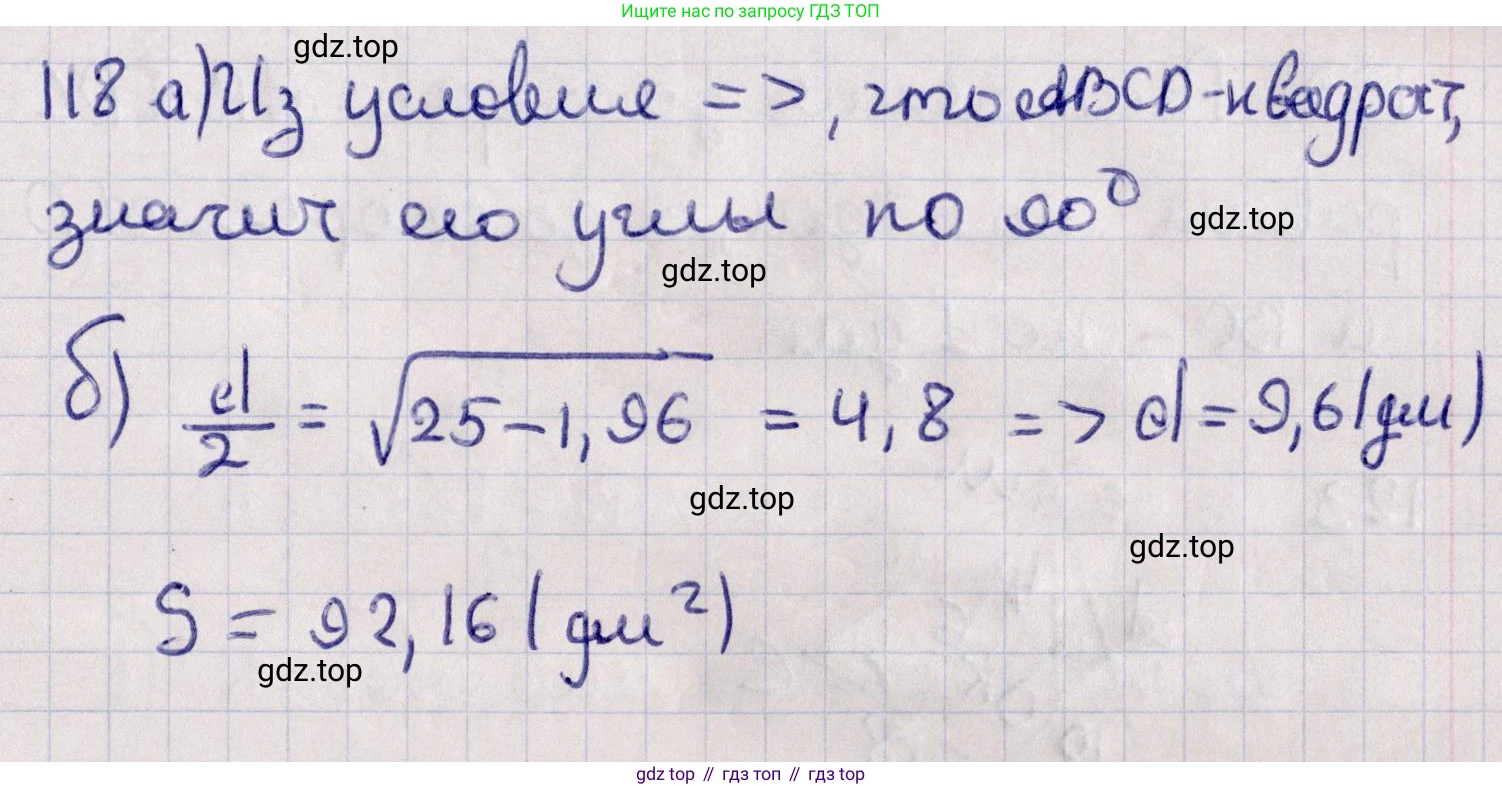 Ищите нас по запросу ГДЗ ТОП
gdz.top
118 а) Из условия =>, что ABCD - квадрат,
значит его углы по 90° gdz.top
gdz.top
б) d/2 = √25 - 1,96 = 4,8 => d = 9,6 (дм)
gdz.top
gdz.top
S = 92,16 (дм²)
gdz.top
gdz top // гдз топ // гдз top